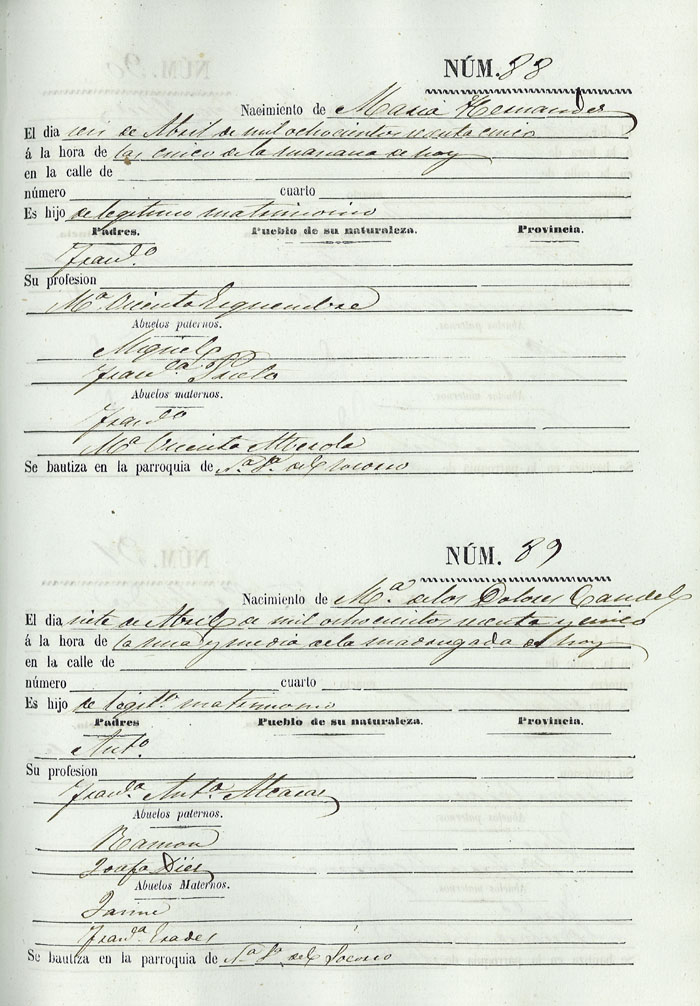 NÚM. 88
Nacimiento de Maria Hernandes
El dia seis de Abril de mil ochocientos sesenta cinco
á la hora de las cinco de la mañana de hoy
en la calle de
número cuarto
Es hijo de legitimo matrimonio
Padres. Pueblo de su naturaleza. Provincia.
Franco.
Su profesion
Ma. Vicenta
Abuelos paternos.
Miguel
Franca.
Abuelos maternos.
Franco
Ma Vicenta Alberola
Se bautiza en la parroquia de Na. Sa. del Socorro
NÚM. 89
Nacimiento de Ma. de los Dolores Candel
El dia siete de Abril de mil ochocientos sesenta y cinco
á la hora de la una y media de la madrugada de hoy
en la calle de
número cuarto
Es hijo de legito. matrimonio
Padres Pueblo de su naturaleza. Provincia.
Anto.
Su profesion
Franca. Anta. Alcaras
Abuelos paternos.
Ramon
Josefa Dies
Abuelos Maternos.
Jaime
Franca. Erades
Se bautiza en la parroquia de Na. Sa. del Socorro